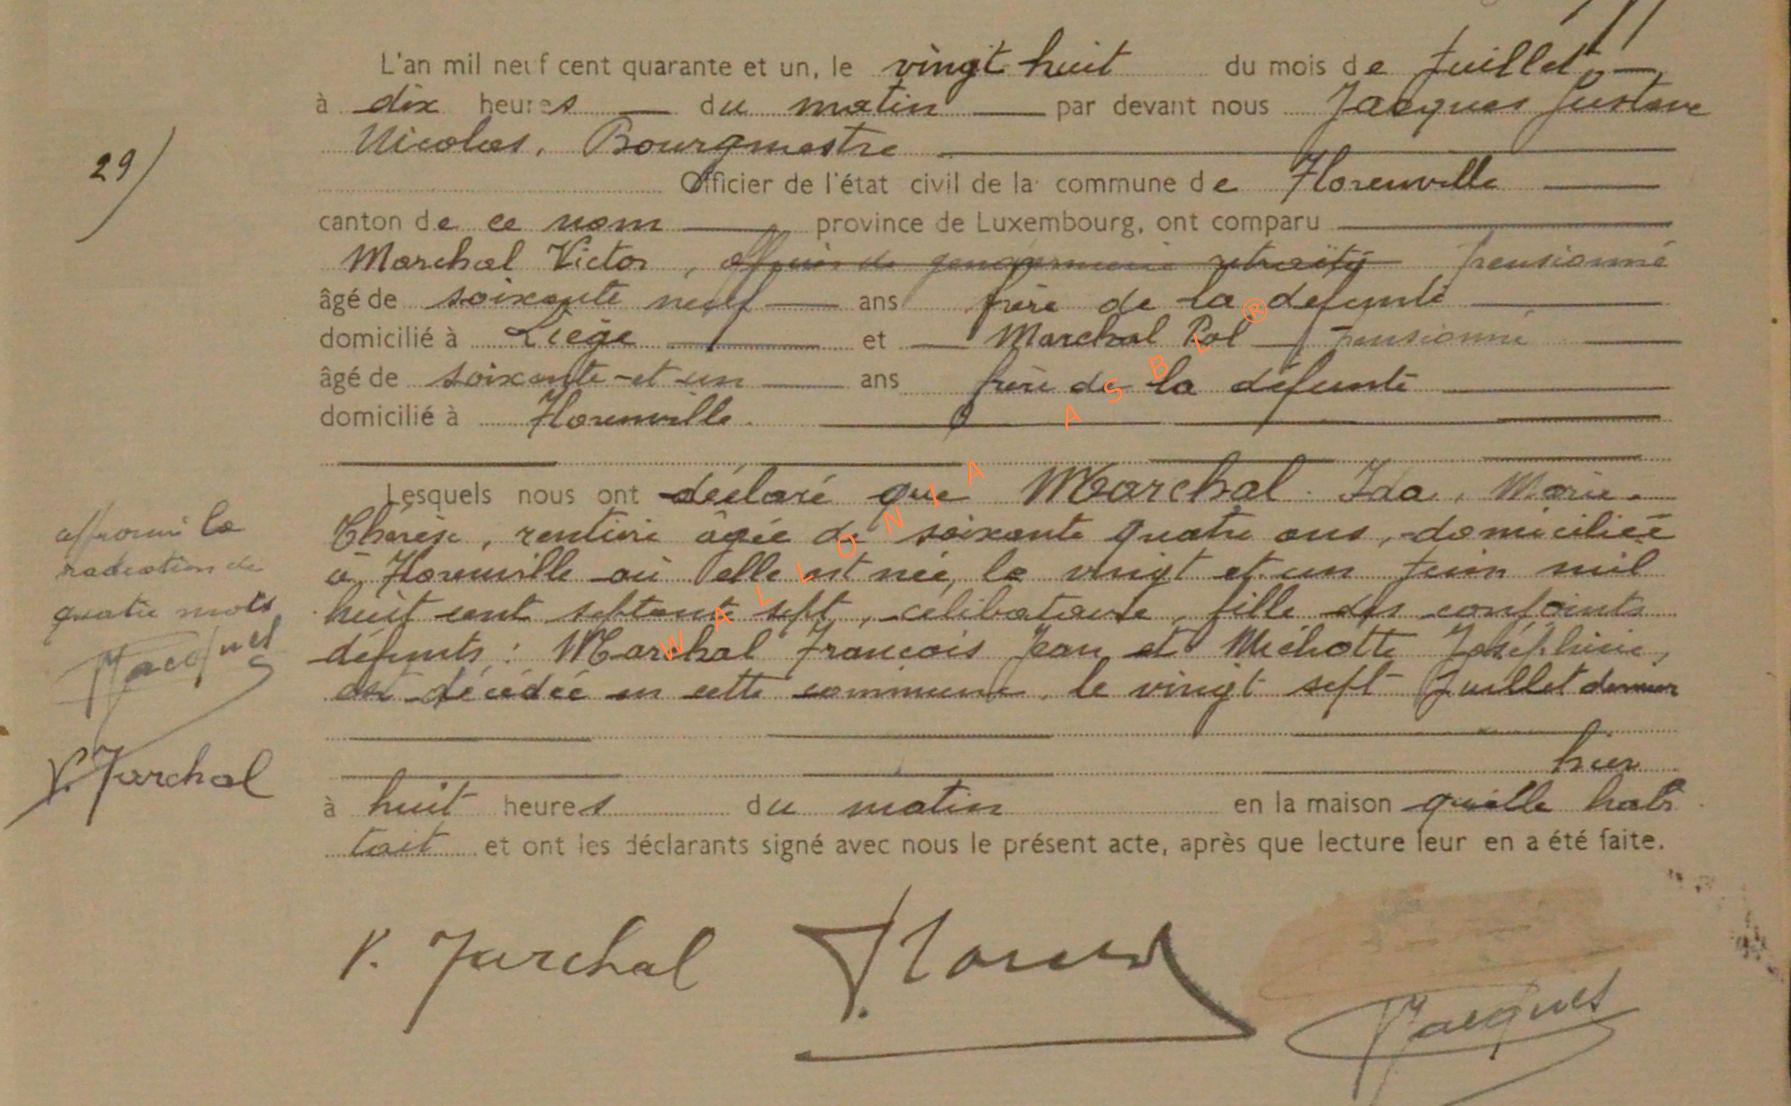 L'an mil neuf cent quarante et un, le vingt huit du mois de Juillet
à dix heures du matin par devant nous Jacques Gustave
29/ Nicolas, Bourgmestre
Officier de l'état civil de la commune de Florenville
canton de ce nom province de Luxembourg, ont comparu
Marchal Victor, officier de gendarmerie retraité pensionné
âgé de soixante neuf ans frère de la défunte
domicilié à Liège et Marchal Pol, pensionné
âgé de soixante-et-un ans frère de la défunte
domicilié à Florenville.
Lesquels nous ont déclaré que Marchal Ida, Marie-
Thérèse, rentière âgée de soixante quatre ans, domiciliée
à Florenville où elle est née, le vingt et un Juin mil
huit cent septante sept, célibataire, fille des conjoints
défunts : Marchal François Jean et Michotte Joséphine,
est décédée en cette commune, le vingt sept Juillet dernier
hier
à huit heures du matin en la maison qu'elle habi
tait et ont les déclarants signé avec nous le présent acte, après que lecture leur en a été faite.
approuvé la
radiation de
quatre mots
Jacques
V. Marchal
V. Marchal
Jacques
WALLONIA ASBL ®